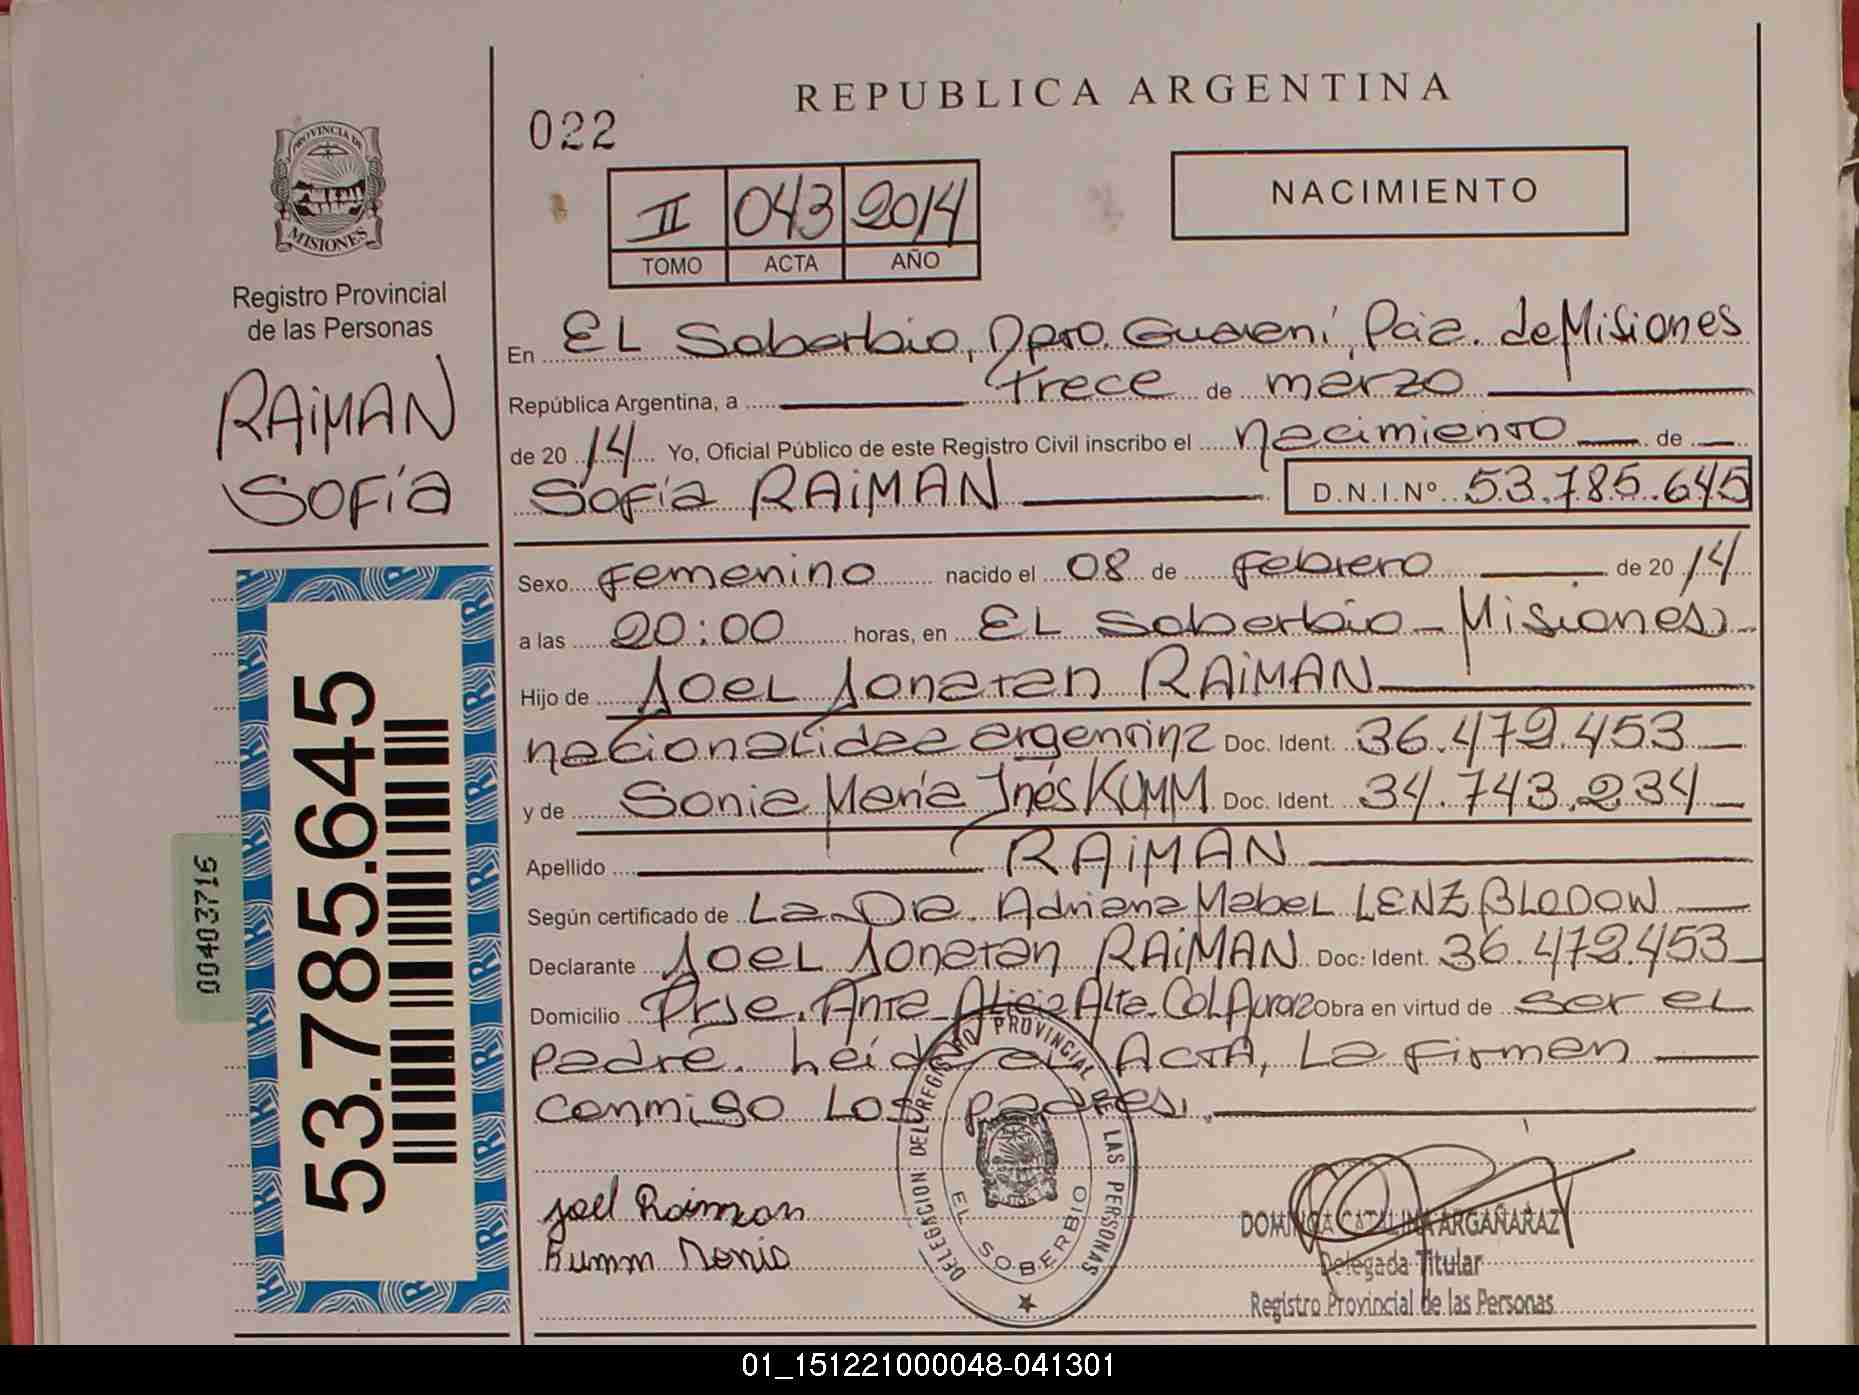 REPUBLICA ARGENTINA
022
PROVINCIA DE
MISIONES
Registro Provincial
de las Personas
RAIMAN
SOFÍA
53.785.645
00403716
II 043 2014
TOMO ACTA AÑO
NACIMIENTO
En EL Soberbio, Dpto. Guaraní, Pcia. de Misiones
República Argentina, a trece de marzo
de 20 14 Yo, Oficial Público de este Registro Civil inscribo el nacimiento de
Sofía RAIMAN D.N.I.Nº 53.785.645
Sexo femenino nacido el 08 de febrero de 20 14
a las 20:00 horas, en EL Soberbio - Misiones
Hijo de Joel Jonatan RAIMAN
nacionalidad argentina Doc. Ident. 36.472.453
y de Sonia María Inés KUMM Doc. Ident. 34.743.234
Apellido RAIMAN
Según certificado de La Dra. Adriana Mabel LENZ BLODOW
Declarante Joel Jonatan RAIMAN Doc. Ident. 36.472.453
Domicilio Prje. Anta Alicia Alta Col. Aurora Obra en virtud de ser el
padre. Leída el ACTA, La firman
conmigo Los padres.
Joel Raiman
Kumm Sonia
DELEGACION DEL REGISTRO PROVINCIAL DE LAS PERSONAS
EL SOBERBIO
DOMINGA CATALINA ARGAÑARAZ
Delegada Titular
Registro Provincial de las Personas
01_151221000048-041301